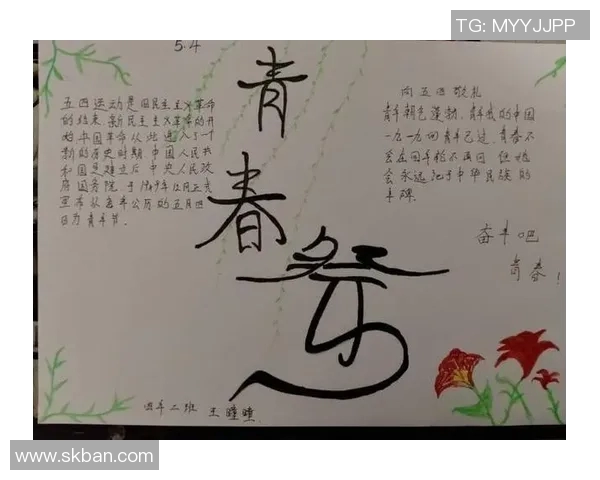 TG: MYYJJPP
5.4
青春祭
五四运动是旧民主主义革命
的结束,新民主主义革命的开
始,中国革命从此进入了一个
新的历史时期,中国人民共
和国是建立后,中央人民政
府国务院,于1949年12月正式
宣布从每年公历的五月四
日为青年节.
向五四敬礼
青年朝气蓬勃,青年我的中国
一九一九的青年已逝,青春不
会在回年轮不再回 但他
会永远记于中华民族的
丰碑.
奋斗吧
青春!
四年二班 王瞳瞳
www.skban.com